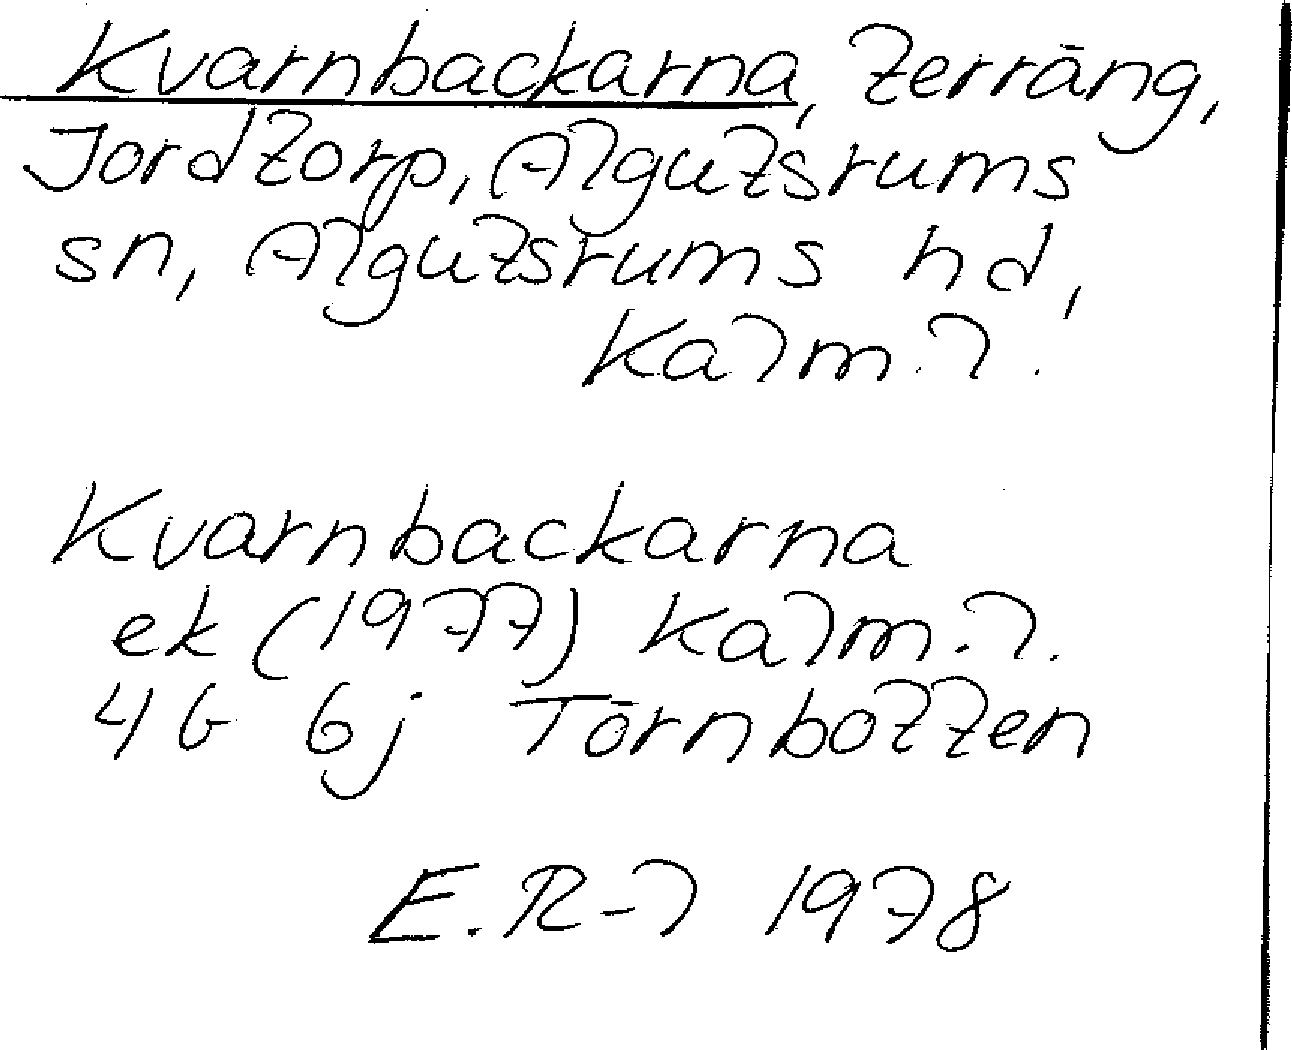 Kvarnbackarna, terräng,
Jordtorp, Algutsrums
sn, Algutsrums hd,
Kalm. l.
Kvarnbackarna
ek (1977) Kalm. l.
4G 6j Törnbotten
E. R-l 1978